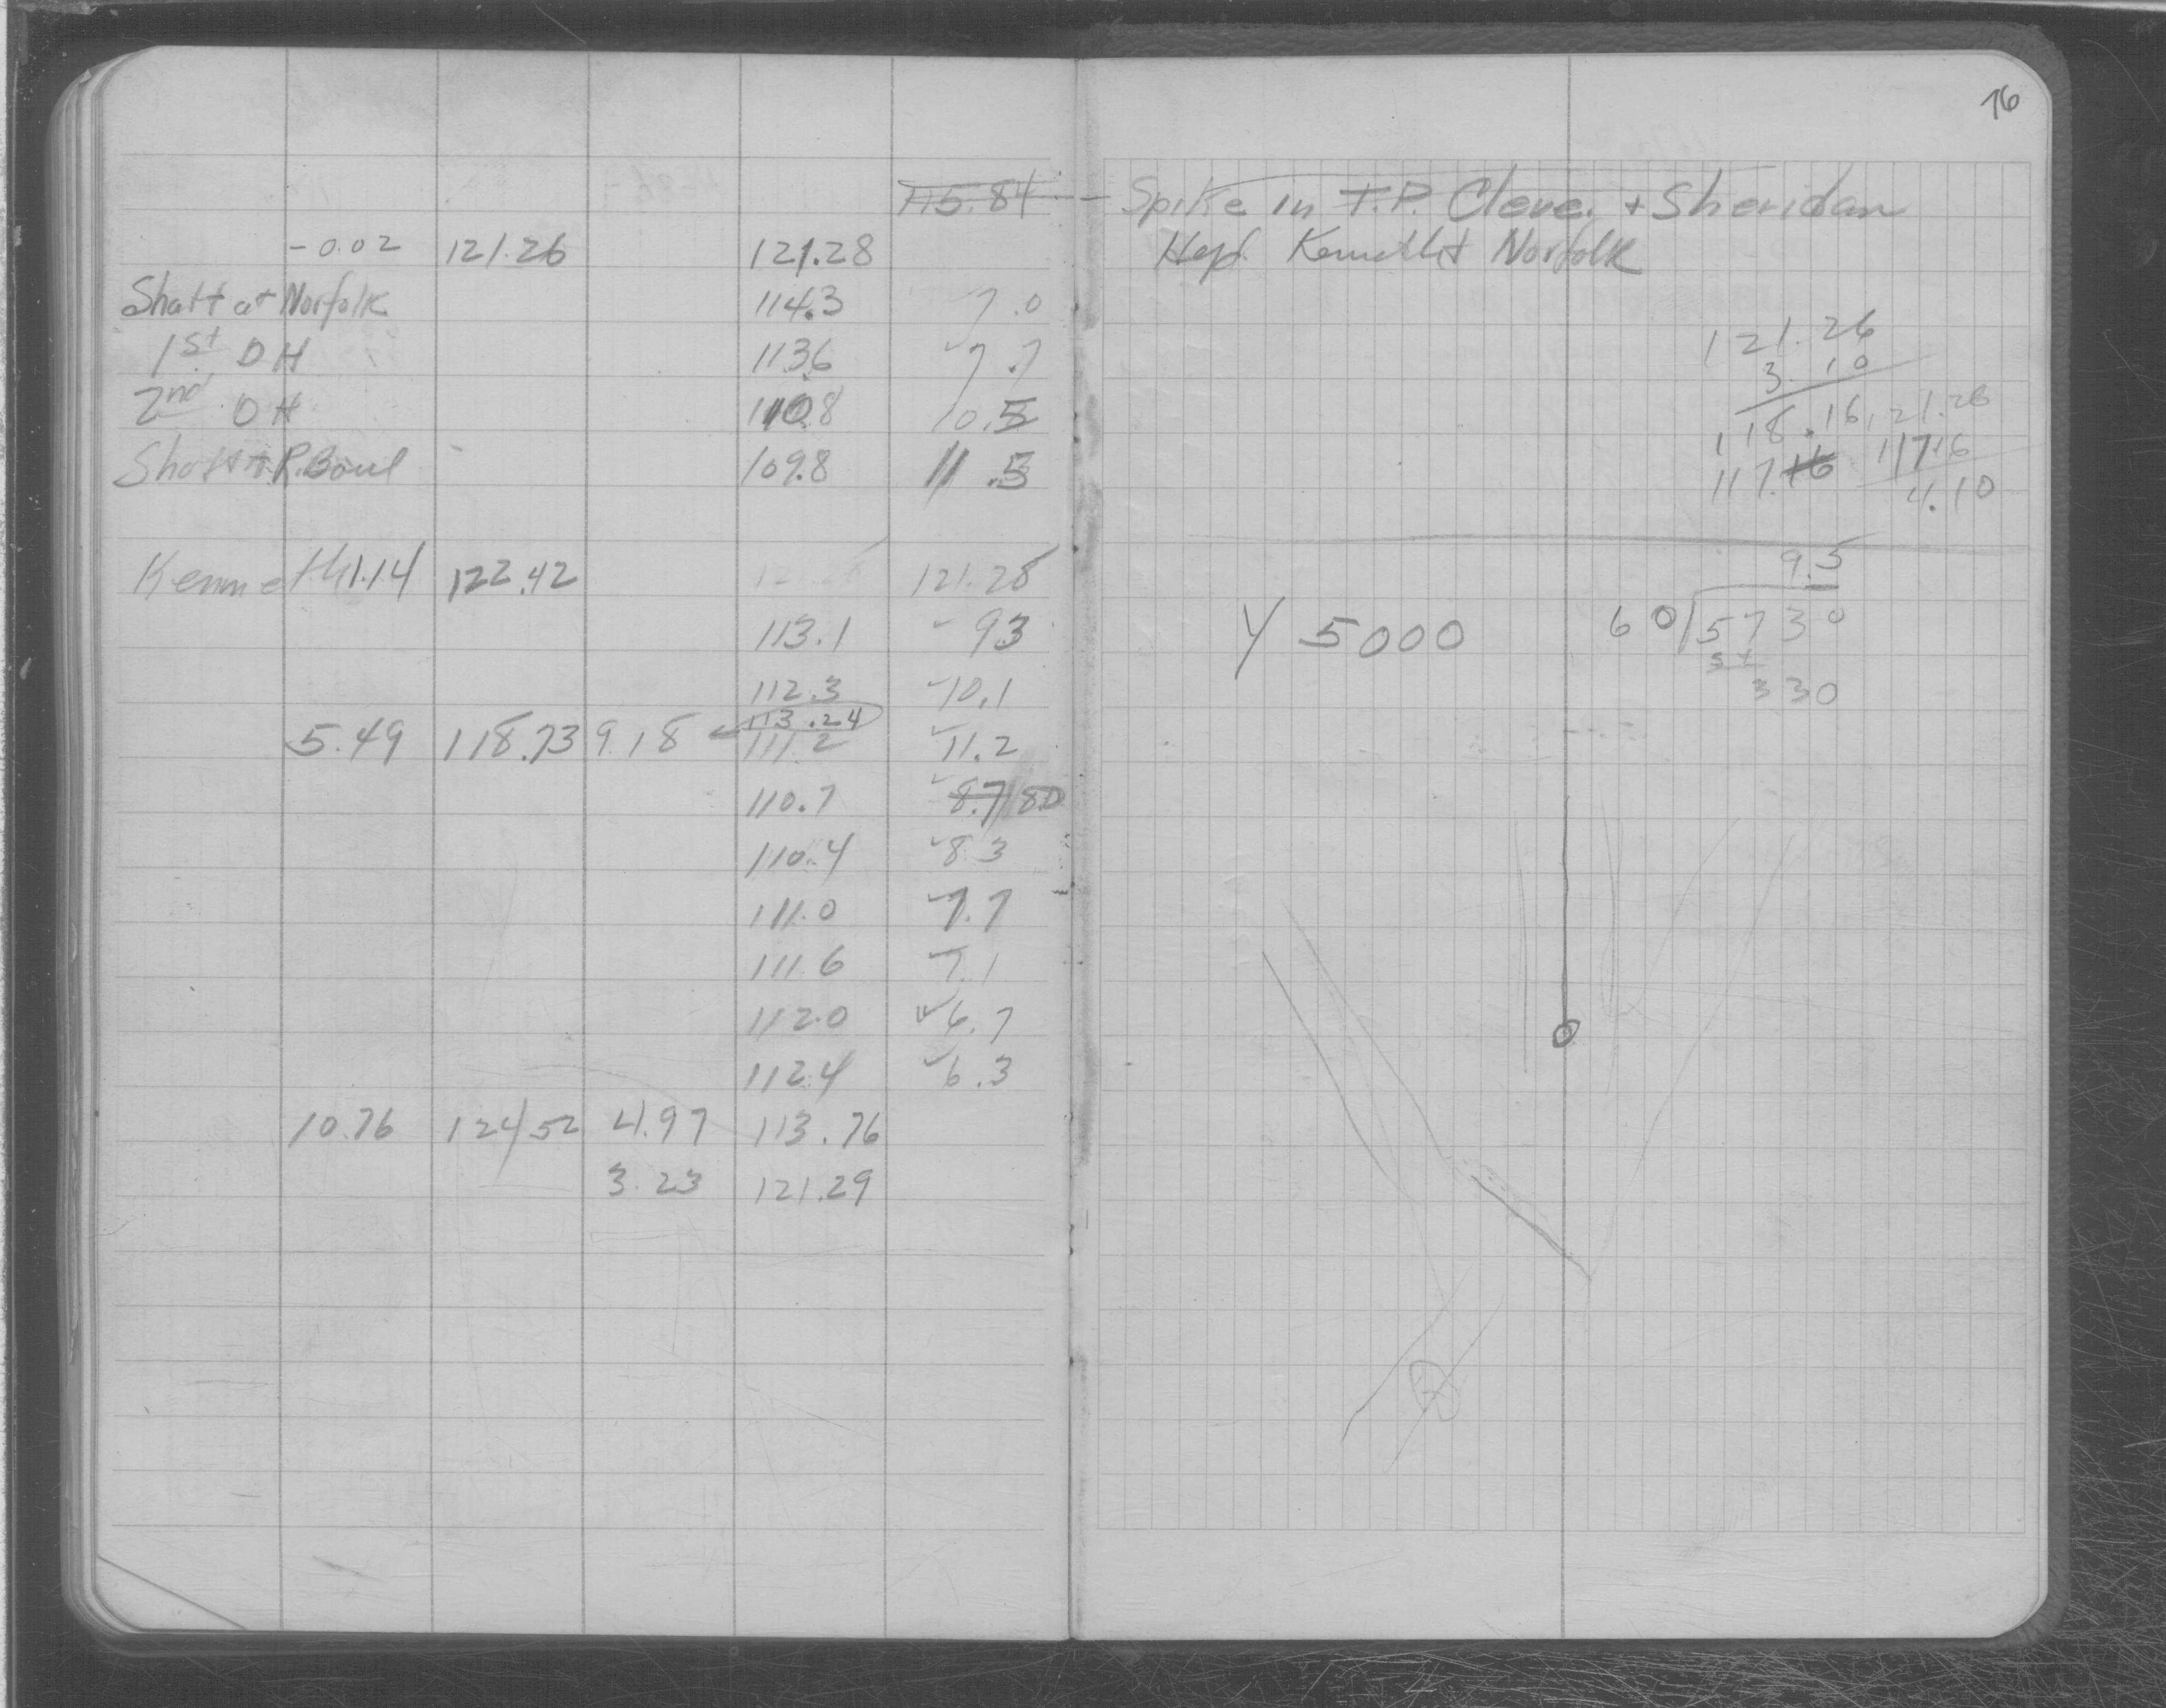 76
115.84 - Spike in T.P. Cleve. + Sheridan
-0.02 121.26 121.28 Hyd. Kenneth + Norfolk
Shaft at Norfolk 114.3 7.0
1st DH 113.6 7.7
2nd DH 110.8 10.5
Shaft R. Boul 109.8 11.5
121.26
3.10
118.16 121.26
117.16 117.16
4.10
Kenneth 1.14 122.42 121.28
113.1 9.3
112.3 10.1
113.24
5.49 118.73 9.18 111.2 11.2
110.7 8.7 8.0
110.4 8.3
111.0 7.7
111.6 7.1
112.0 6.7
112.4 6.3
10.76 124.52 4.97 113.76
3.23 121.29
9.5
Y 5000 60 5730
54
330